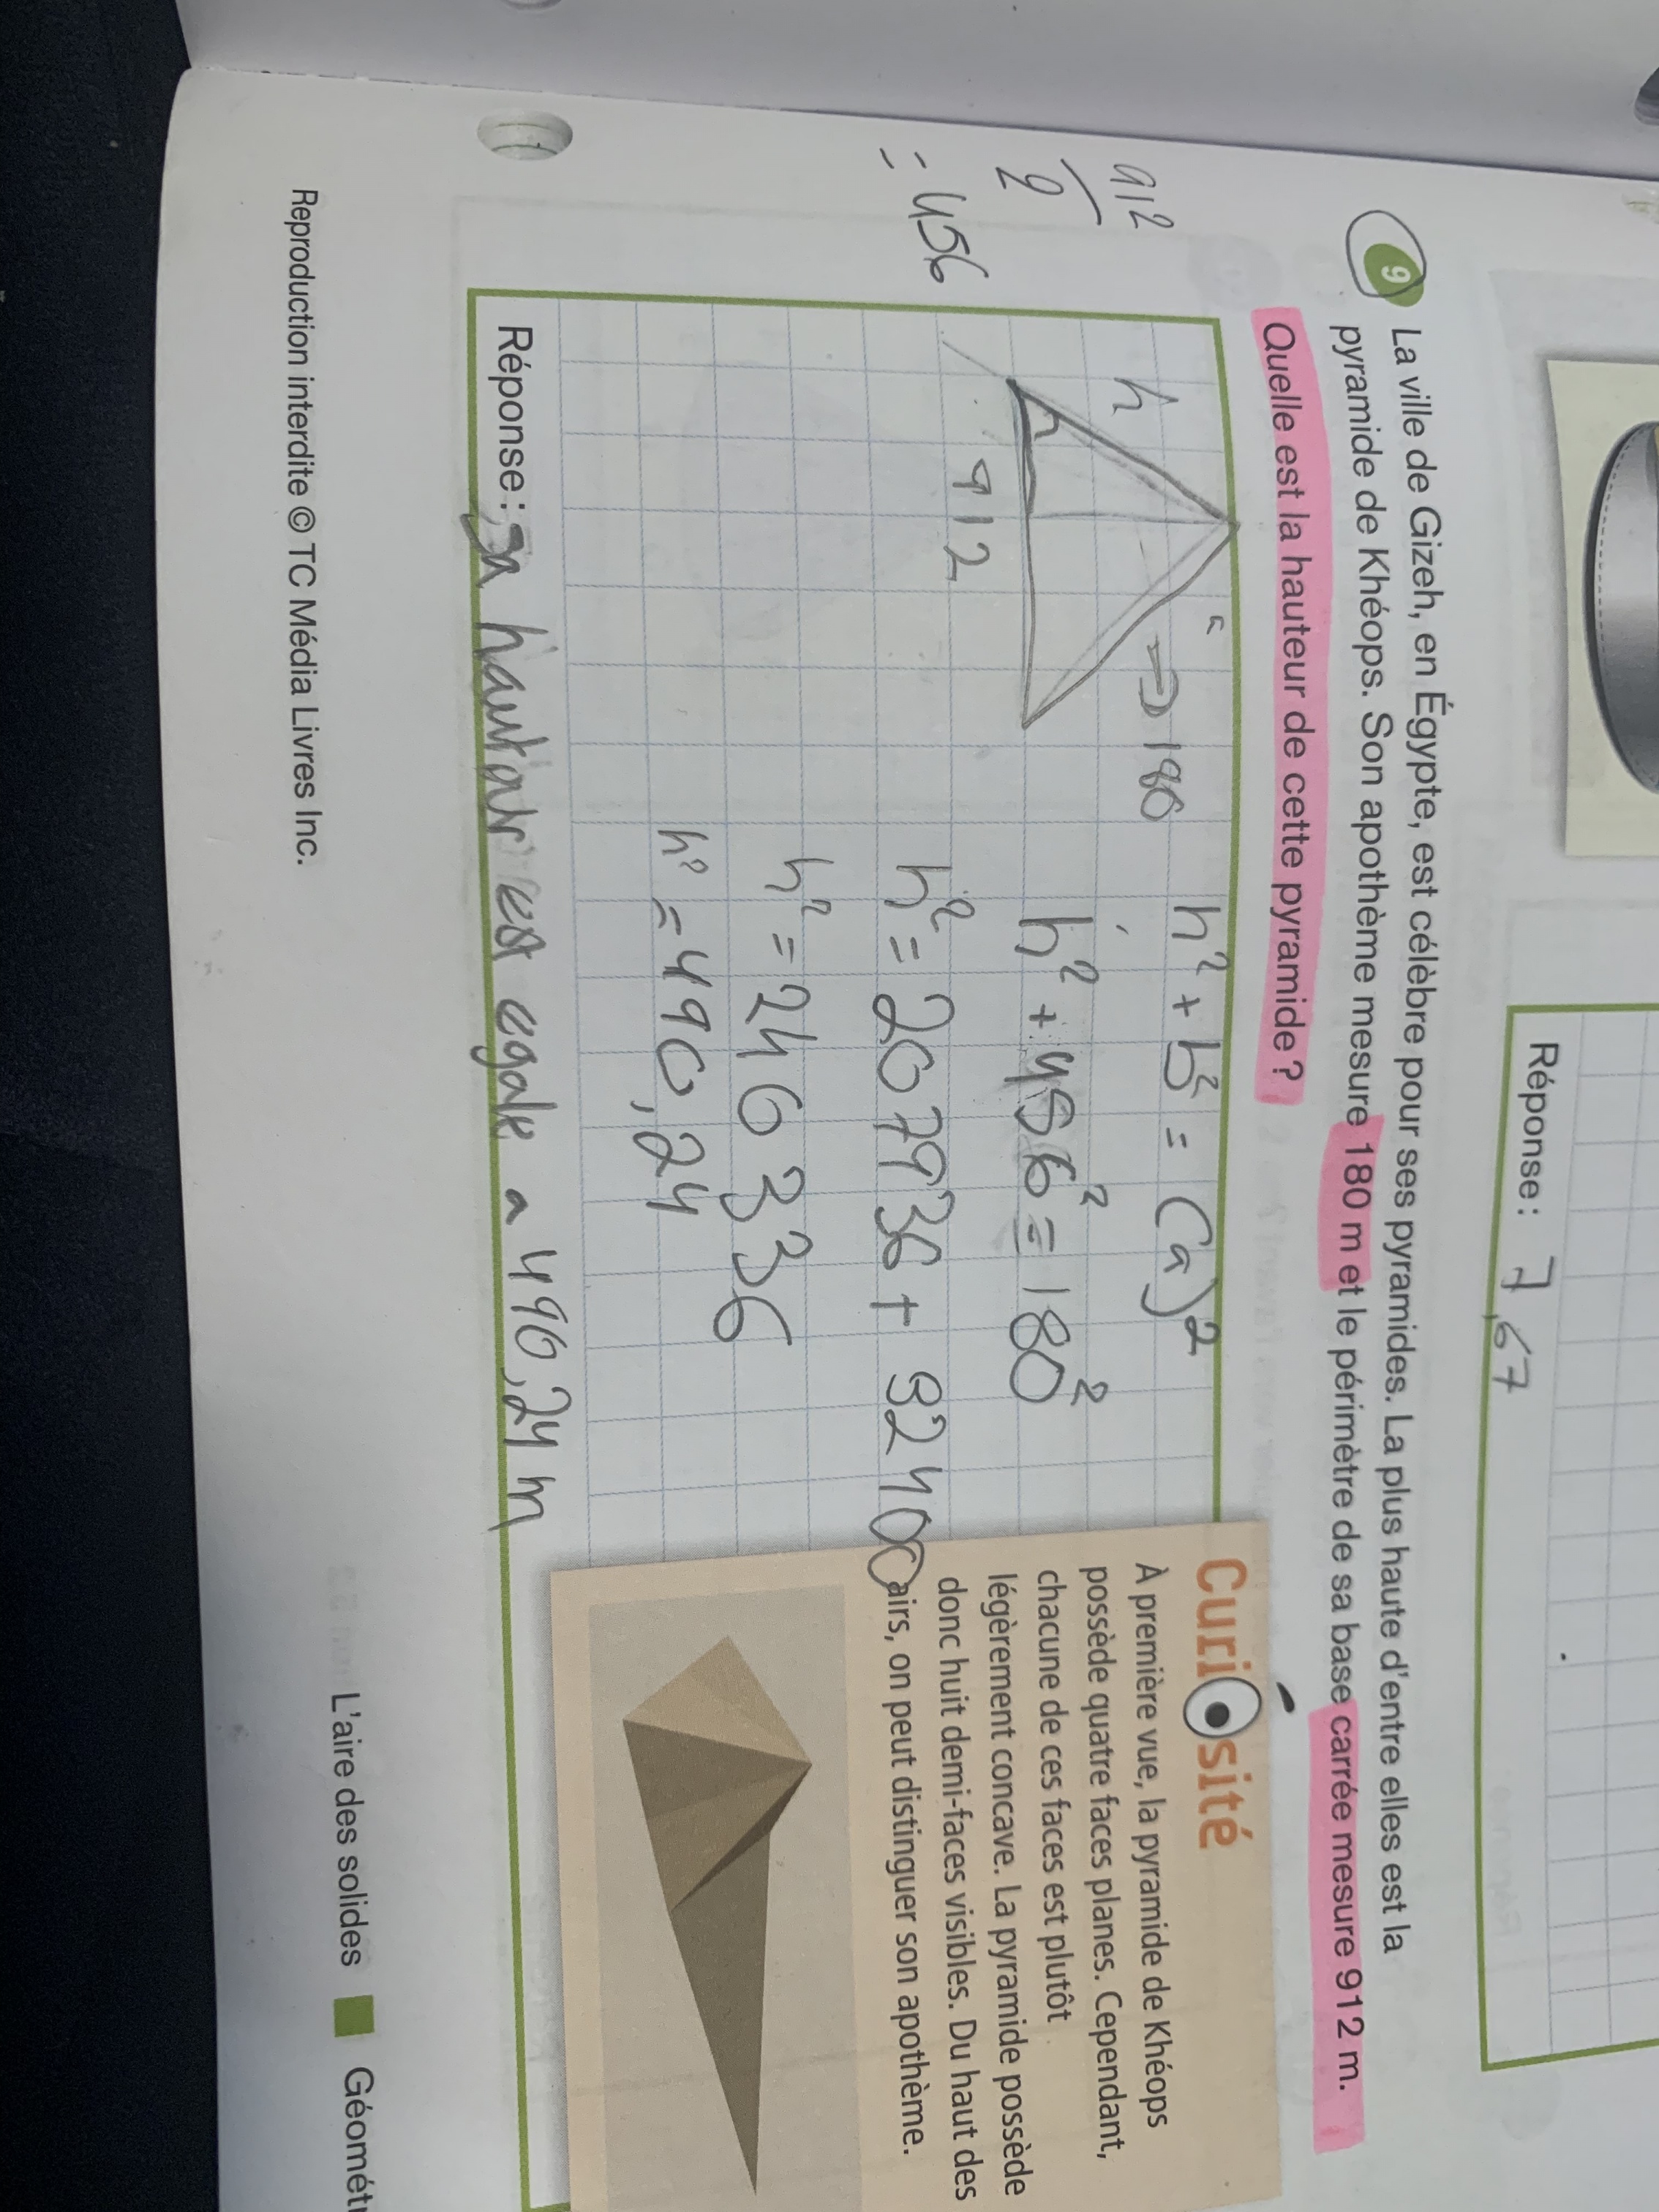 Réponse : 7,67
9
La ville de Gizeh, en Égypte, est célèbre pour ses pyramides. La plus haute d'entre elles est la
pyramide de Khéops. Son apothème mesure 180 m et le périmètre de sa base carrée mesure 912 m.
Quelle est la hauteur de cette pyramide ?
912
2
= 456
h
a → 180
912
h² + b² = (a)²
h² + 456² = 180²
h² = 207936 + 32400
h² = 240336
h² = 490,24
Réponse : sa hauteur est egale a 490,24 m
Curiosité
À première vue, la pyramide de Khéops
possède quatre faces planes. Cependant,
chacune de ces faces est plutôt
légèrement concave. La pyramide possède
donc huit demi-faces visibles. Du haut des
airs, on peut distinguer son apothème.
Reproduction interdite © TC Média Livres Inc.
L'aire des solides